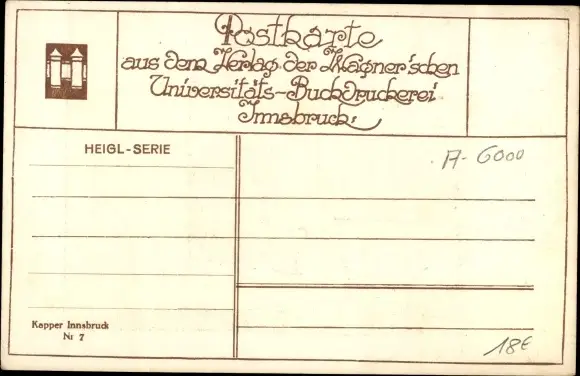 Postkarte
aus dem Verlag der Wagner'schen
Universitäts-Buchdruckerei
Innsbruck.
HEIGL-SERIE
A-6000
Kapper Innsbruck
Nr 7
18€